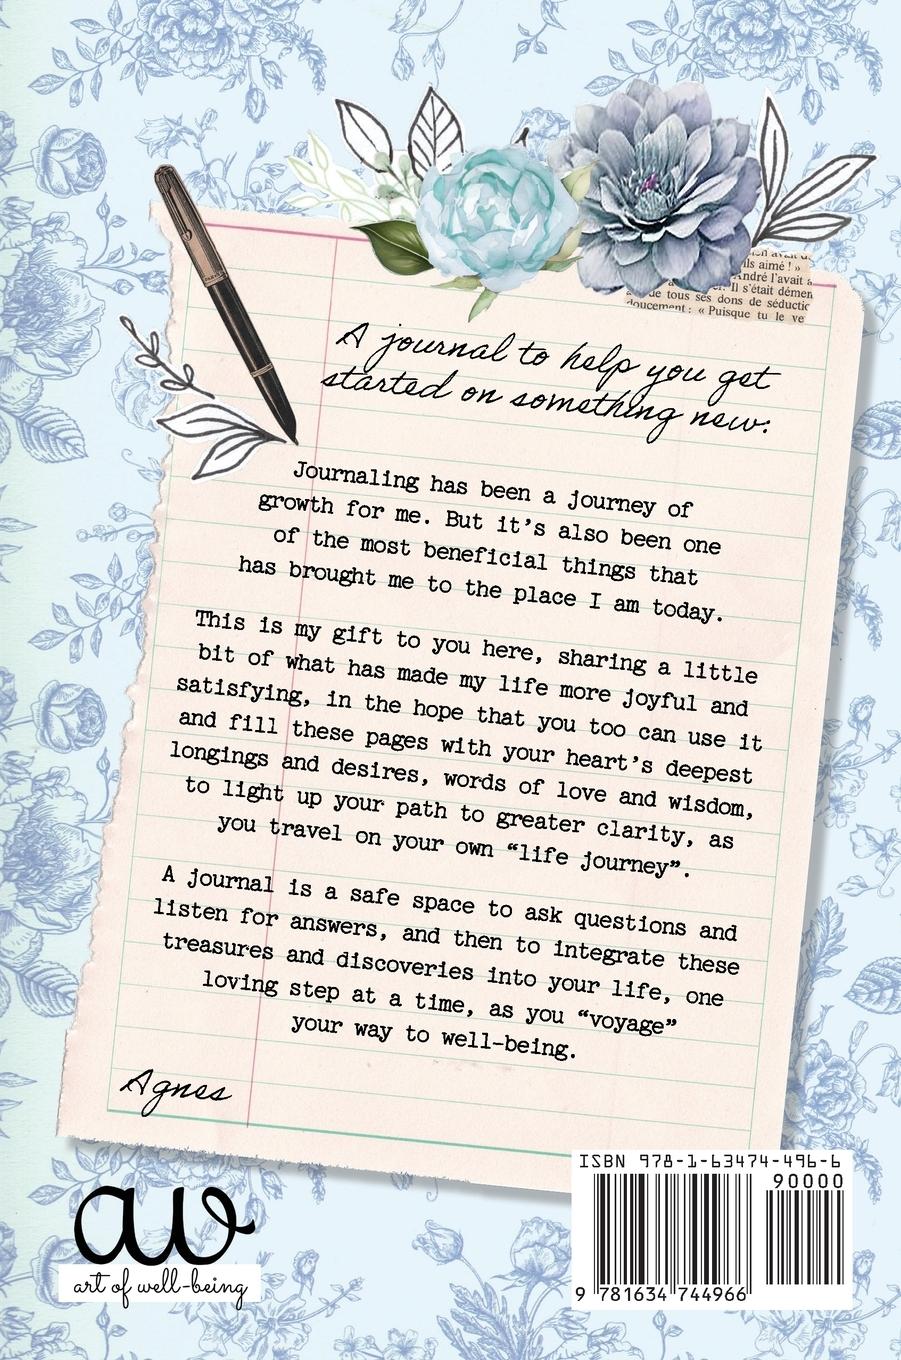 lien avait d
ils aimé ! »
André l'avait a
er. Il s'était démen
de tous ses dons de séductio
doucement : « Puisque tu le ve
A journal to help you get
started on something new:
Journaling has been a journey of
growth for me. But it’s also been one
of the most beneficial things that
has brought me to the place I am today.
This is my gift to you here, sharing a little
bit of what has made my life more joyful and
satisfying, in the hope that you too can use it
and fill these pages with your heart’s deepest
longings and desires, words of love and wisdom,
to light up your path to greater clarity, as
you travel on your own “life journey”.
A journal is a safe space to ask questions and
listen for answers, and then to integrate these
treasures and discoveries into your life, one
loving step at a time, as you “voyage”
your way to well-being.
Agnes
aw
art of well-being
ISBN 978-1-63474-496-6
90000
9 781634 744966